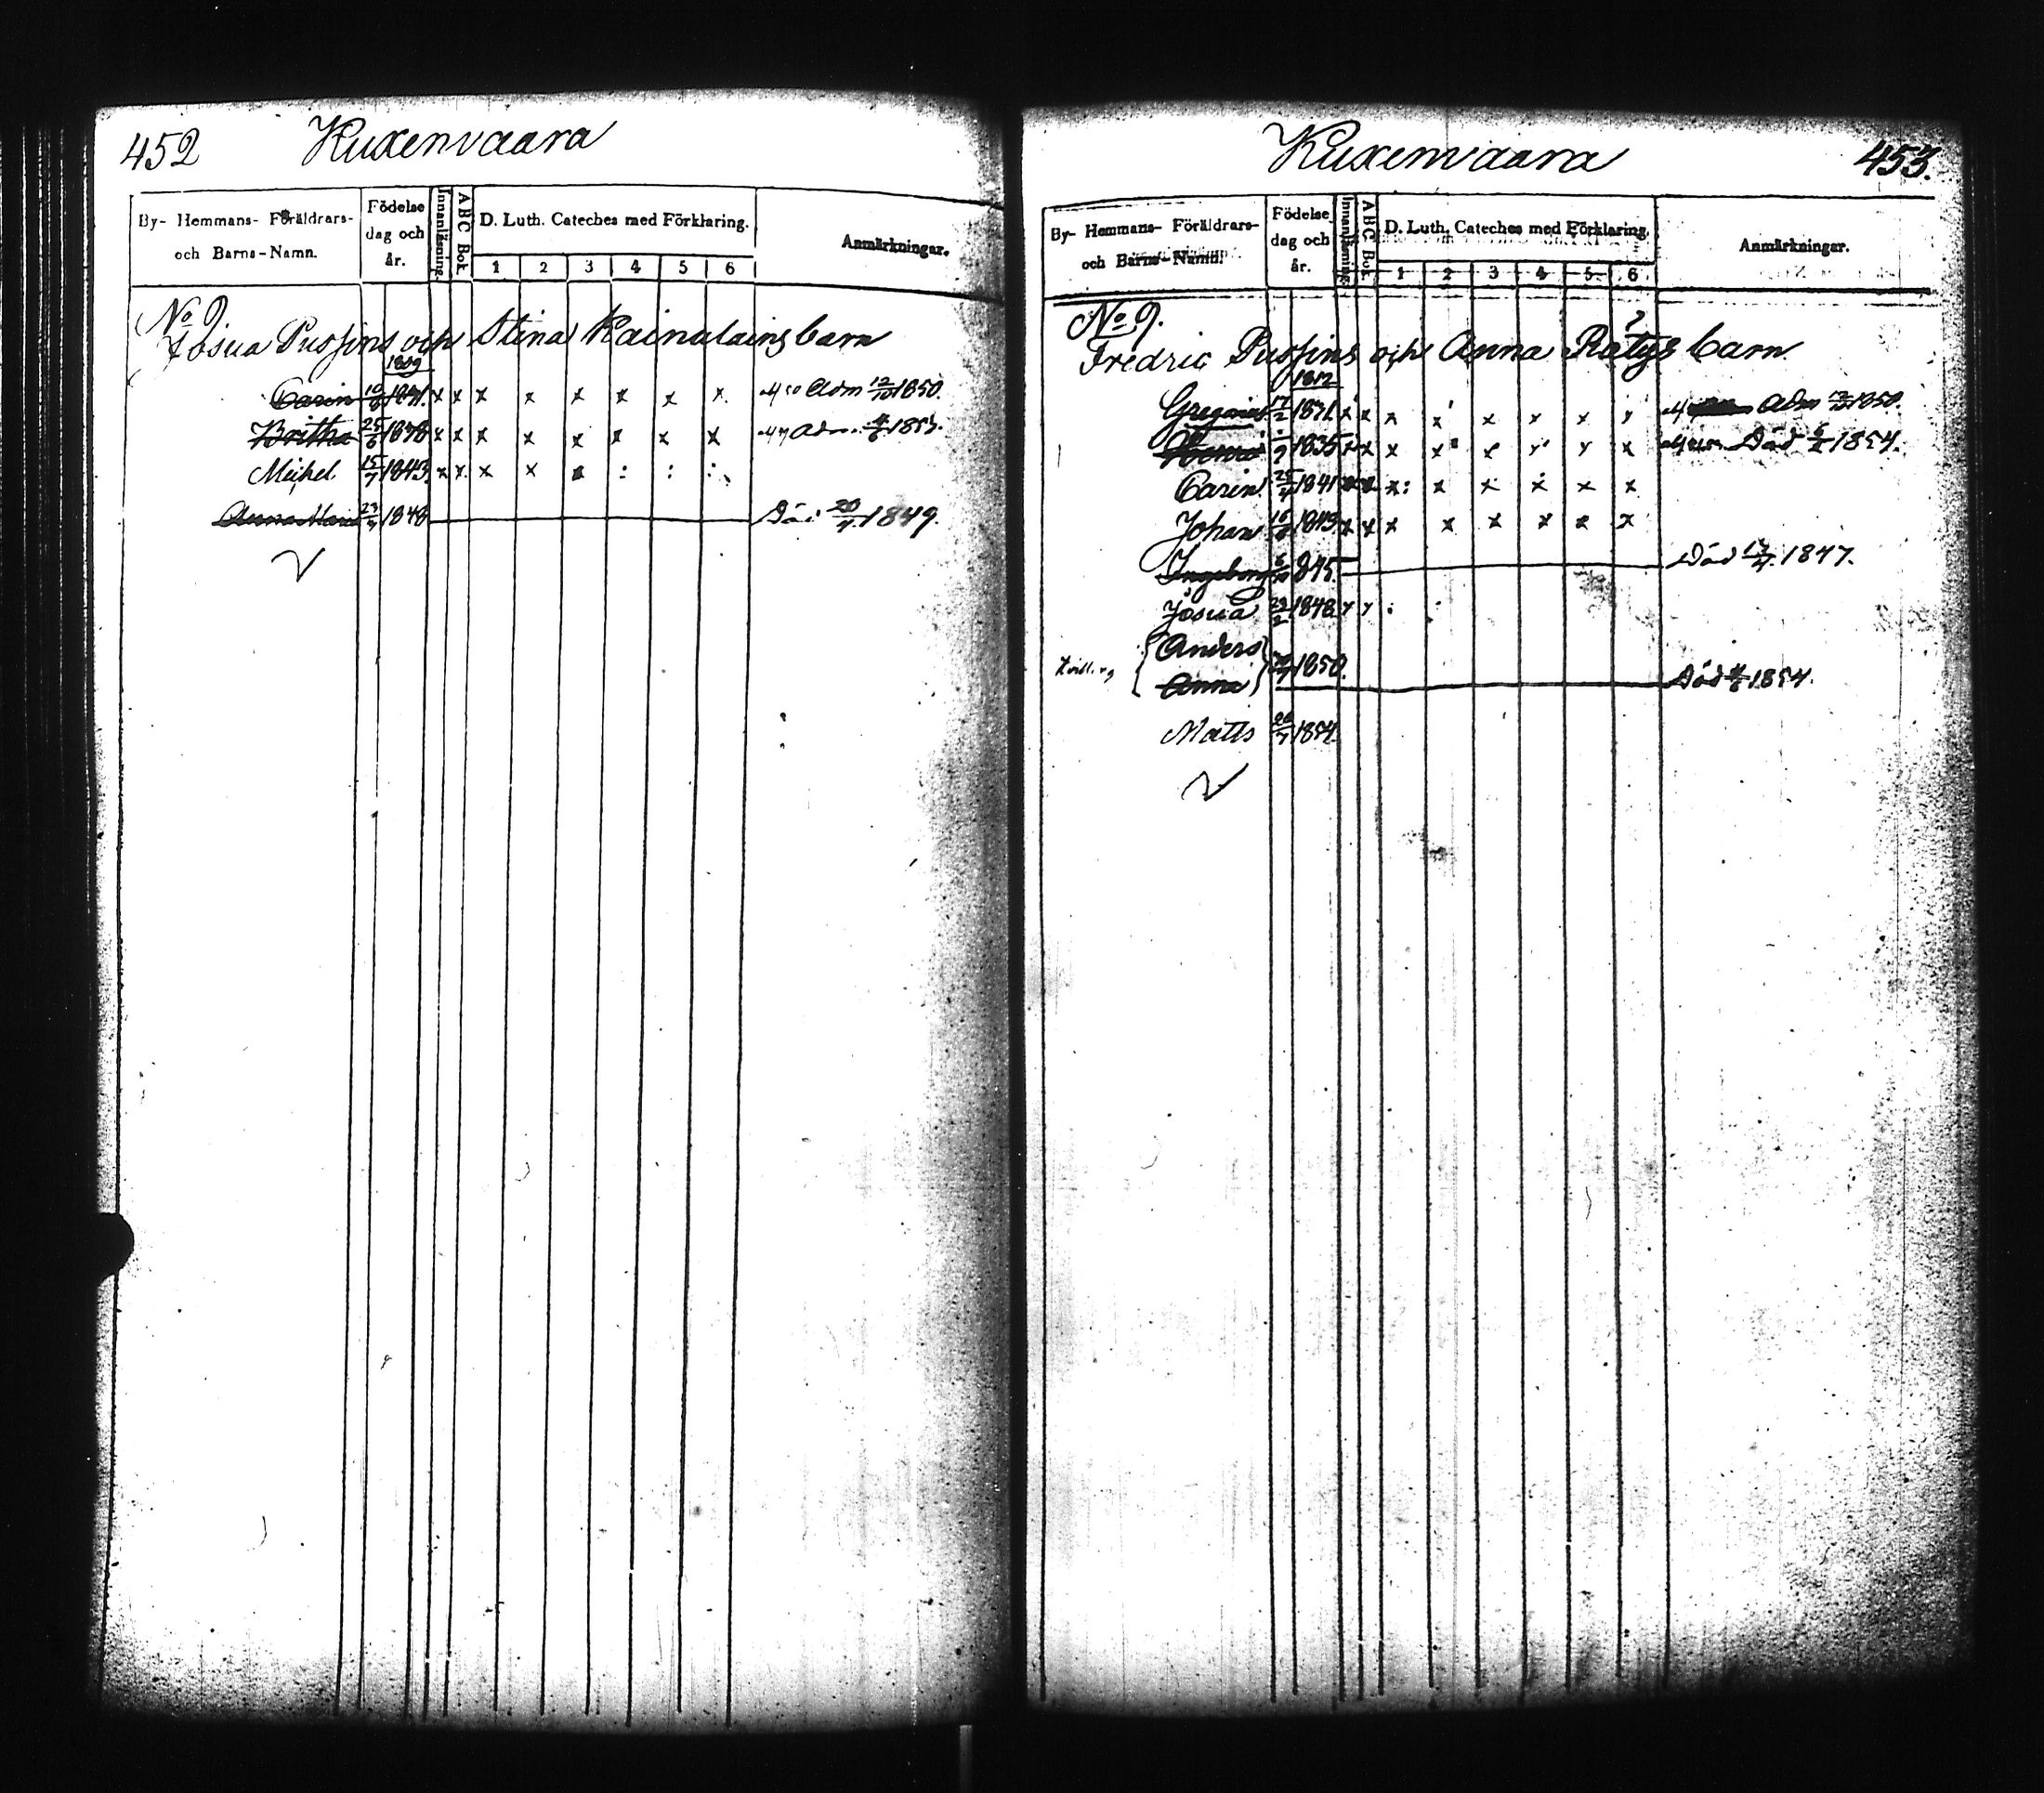 452 Kuxenvaara
By- Hemmans- Föräldrars- och Barns-Namn. Födelse dag och år. Innanläsning. ABC Bok. D. Luth. Cateches med Förklaring. Anmärkningar.
1 2 3 4 5 6
No 9.
Josua Pussins och Stina Kainalains barn
1829
Carin 10/8 1831. x x x x x x x x Adm 12/10 1850.
Britha 25/6 1838 x x x x x x x x Adm. 1853.
Michel 15/7 1843. x x x x : : :
Anna Maria 23/4 1848 Död 20/7 1849.
Kuxenvaara 453.
By- Hemmans- Föräldrars- och Barns-Namn. Födelse dag och år. Innanläsning. ABC Bok. D. Luth. Cateches med Förklaring. Anmärkningar.
1 2 3 4 5 6
No 9.
Fredric Pussins och Anna Rätys barn
1812
Gregorius 17/2 1831. x x x x x x x x Adm 1850.
1835 x x x x x x x x Död 1854.
Carin 25/4 1841 x x x: x x x x x
Johan 16/6 1843. x x x x x x x x
Ingeborg 1845. Död 1847.
Josua 29/2 1848. x x : :
Anders
1850.
Anna Död 1854.
Matts 1854.